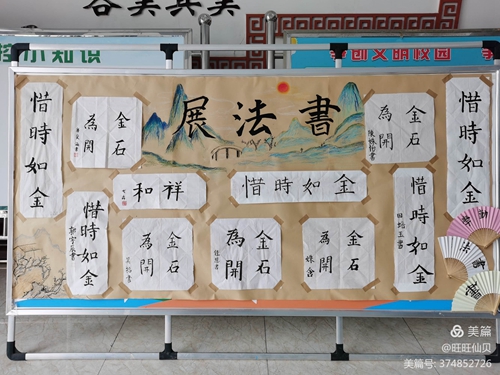 各美其美
控小知识
创文明校园
書法展
惜時如金
金石
為開
金石
為開
惜時如金
祥和
惜時如金
惜時如金
惜時如金
金石
為開
金石
為開
金石
為開
美篇
@旺旺仙贝
美篇号: 374852726